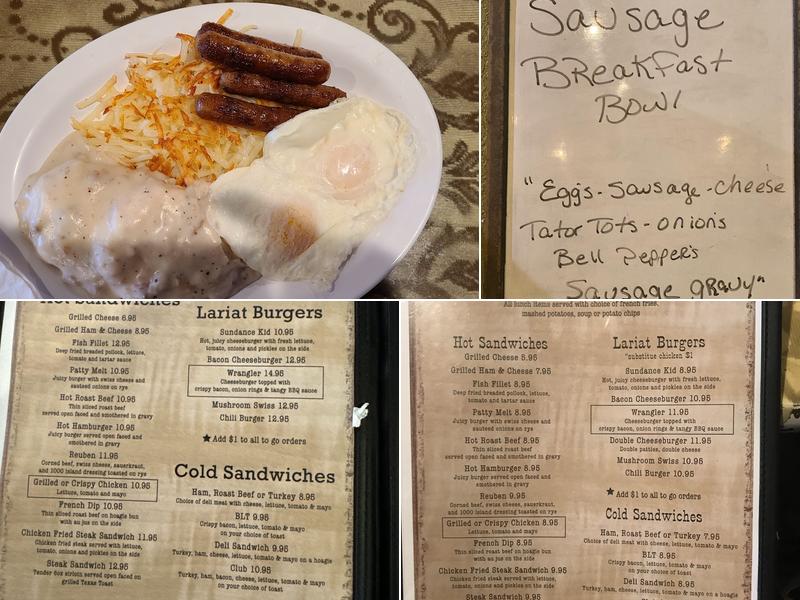 Sausage
Breakfast
Bowl
"Egg's - Sausage - cheese
Tator Tots - onion's
Bell Pepper's
Sausage gravy"
Hot Sandwiches
Grilled Cheese 6.95
Grilled Ham & Cheese 8.95
Fish Fillet 12.95
Deep fried breaded pollock, lettuce,
tomato and tartar sauce
Patty Melt 10.95
Juicy burger with swiss cheese and
sauteed onions on rye
Hot Roast Beef 10.95
Thin sliced roast beef
served open faced and smothered in gravy
Hot Hamburger 10.95
Juicy burger served open faced and
smothered in gravy
Reuben 11.95
Corned beef, swiss cheese, sauerkraut,
and 1000 island dressing toasted on rye
Grilled or Crispy Chicken 10.95
Lettuce, tomato and mayo
French Dip 10.95
Thin sliced roast beef on hoagie bun
with au jus on the side
Chicken Fried Steak Sandwich 11.95
Chicken fried steak served with lettuce,
tomato, onions and pickles on the side
Steak Sandwich 12.95
Tender 6oz sirloin served open faced on
grilled Texas Toast
Lariat Burgers
Sundance Kid 10.95
Hot, juicy cheeseburger with fresh lettuce,
tomato, onions and pickles on the side
Bacon Cheeseburger 12.95
Wrangler 14.95
Cheeseburger topped with
crispy bacon, onion rings & tangy BBQ sauce
Mushroom Swiss 12.95
Chili Burger 12.95
★ Add $1 to all to go orders
Cold Sandwiches
Ham, Roast Beef or Turkey 8.95
Choice of deli meat with cheese, lettuce, tomato & mayo
BLT 9.95
Crispy bacon, lettuce, tomato & mayo
on your choice of toast
Deli Sandwich 9.95
Turkey, ham, bacon, cheese, lettuce, tomato & mayo on a hoagie
Club 10.95
Turkey, ham, bacon, cheese, lettuce, tomato & mayo
on your choice of toast
All lunch items served with choice of french fries,
mashed potatoes, soup or potato chips
Hot Sandwiches
Grilled Cheese 5.95
Grilled Ham & Cheese 7.95
Fish Fillet 8.95
Deep fried breaded pollock, lettuce,
tomato and tartar sauce
Patty Melt 8.95
Juicy burger with swiss cheese and
sauteed onions on rye
Hot Roast Beef 8.95
Thin sliced roast beef
served open faced and smothered in gravy
Hot Hamburger 8.95
Juicy burger served open faced and
smothered in gravy
Reuben 9.95
Corned beef, swiss cheese, sauerkraut,
and 1000 island dressing toasted on rye
Grilled or Crispy Chicken 8.95
Lettuce, tomato and mayo
French Dip 8.95
Thin sliced roast beef on hoagie bun
with au jus on the side
Chicken Fried Steak Sandwich 9.95
Chicken fried steak served with lettuce,
tomato, onions and pickles on the side
Steak Sandwich 9.95
Lariat Burgers
*substitue chicken $1
Sundance Kid 8.95
Hot, juicy cheeseburger with fresh lettuce,
tomato, onions and pickles on the side
Bacon Cheeseburger 10.95
Wrangler 11.95
Cheeseburger topped with
crispy bacon, onion rings & tangy BBQ sauce
Double Cheeseburger 11.95
Double patties, double cheese
Mushroom Swiss 10.95
Chili Burger 10.95
★ Add $1 to all to go orders
Cold Sandwiches
Ham, Roast Beef or Turkey 7.95
Choice of deli meat with cheese, lettuce, tomato & mayo
BLT 8.95
Crispy bacon, lettuce, tomato & mayo
on your choice of toast
Deli Sandwich 8.95
Turkey, ham, bacon, cheese, lettuce, tomato & mayo on a hoagie